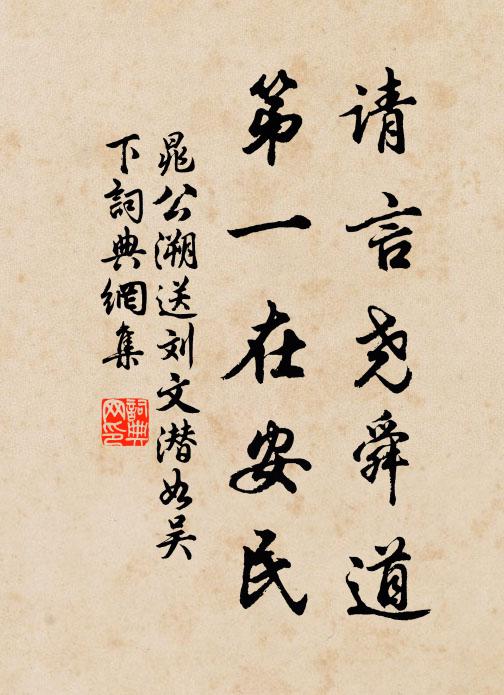 请言尧舜道
第一在安民
晁公溯送刘文潜如吴
下词典網集
詞典网印